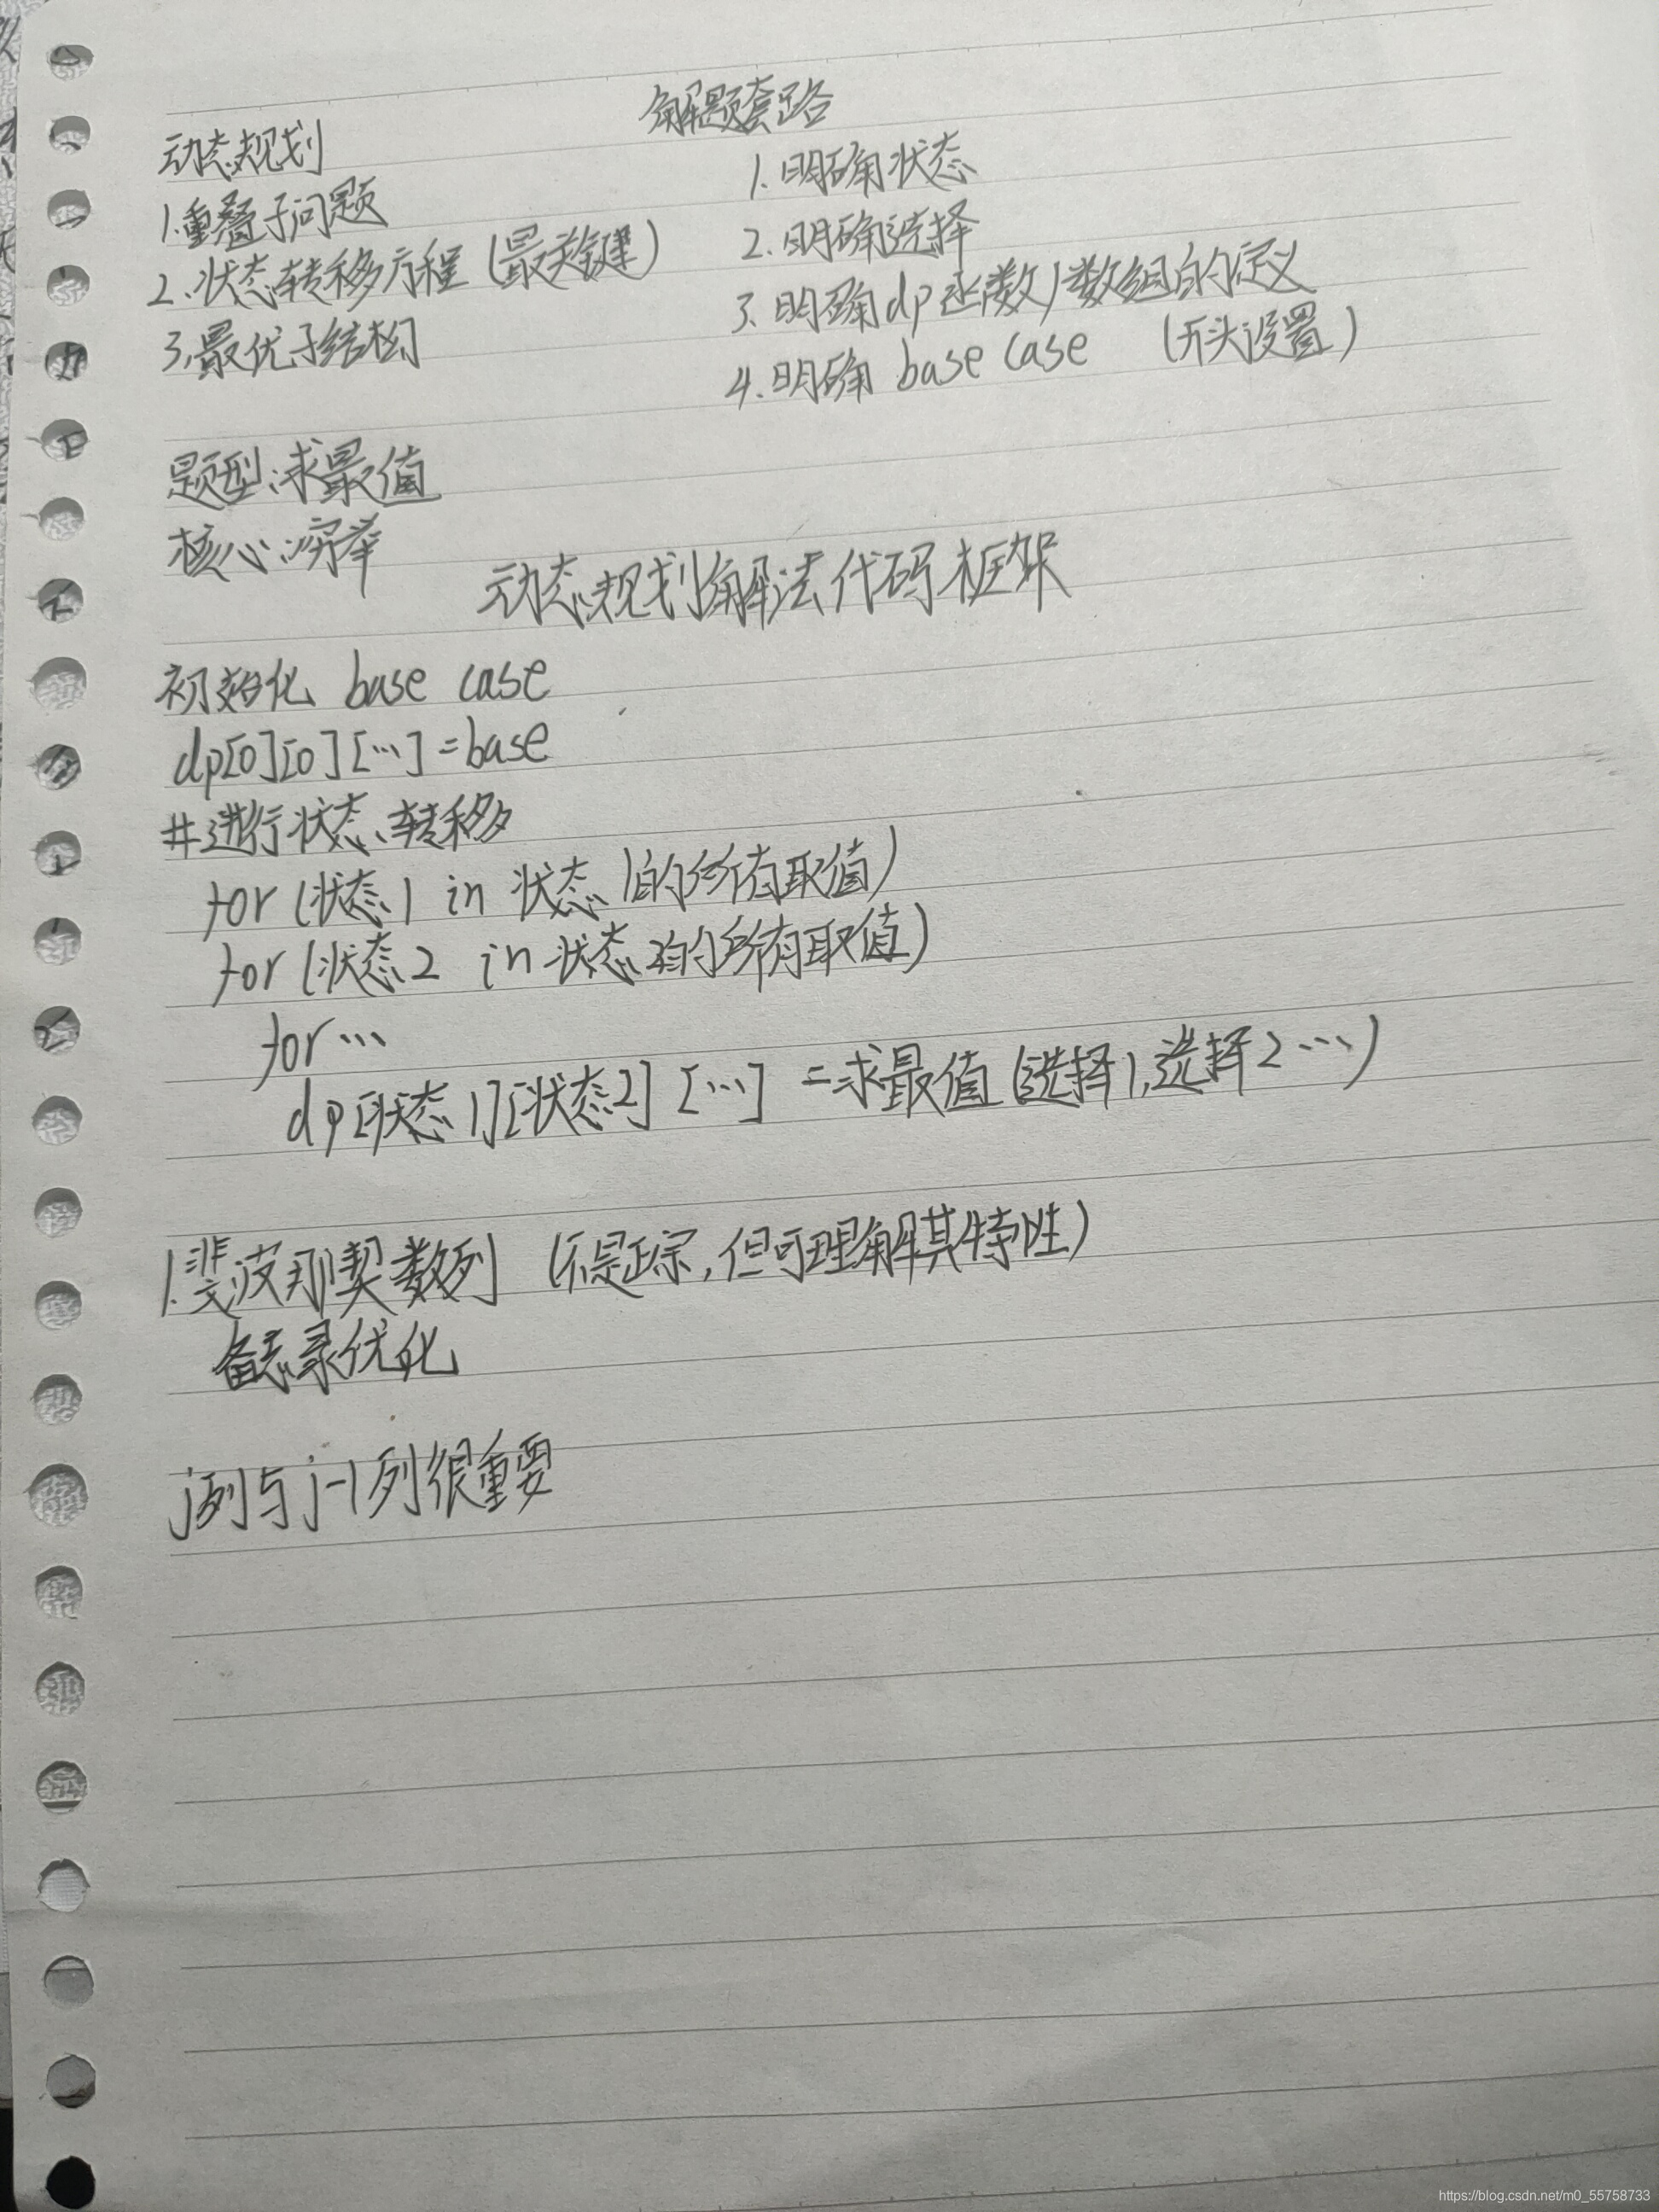 解题套路
动态规划
1.重叠子问题
2.状态转移方程(最关键)
3.最优子结构
1.明确状态
2.明确选择
3.明确dp函数/数组的定义
4.明确 base case (开头设置)
题型:求最值
核心:穷举
动态规划解法代码框架
初始化 base case
dp[0][0][…]=base
#进行状态转移
for (状态1 in 状态1的所有取值)
for (状态2 in 状态2的所有取值)
for…
dp[状态1][状态2][…] =求最值(选择1,选择2…)
1.斐波那契数列 (不是正宗,但可理解其特性)
备忘录优化
j列与j-1列很重要
https://blog.csdn.net/m0_55758733